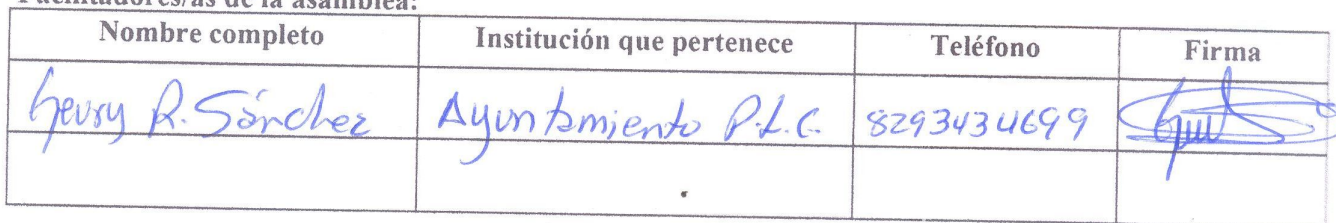 Facilitadores/as de la asamblea:
Nombre completo Institución que pertenece Teléfono Firma
Gevry R. Sánchez Ayuntamiento P.L.C. 8293434699